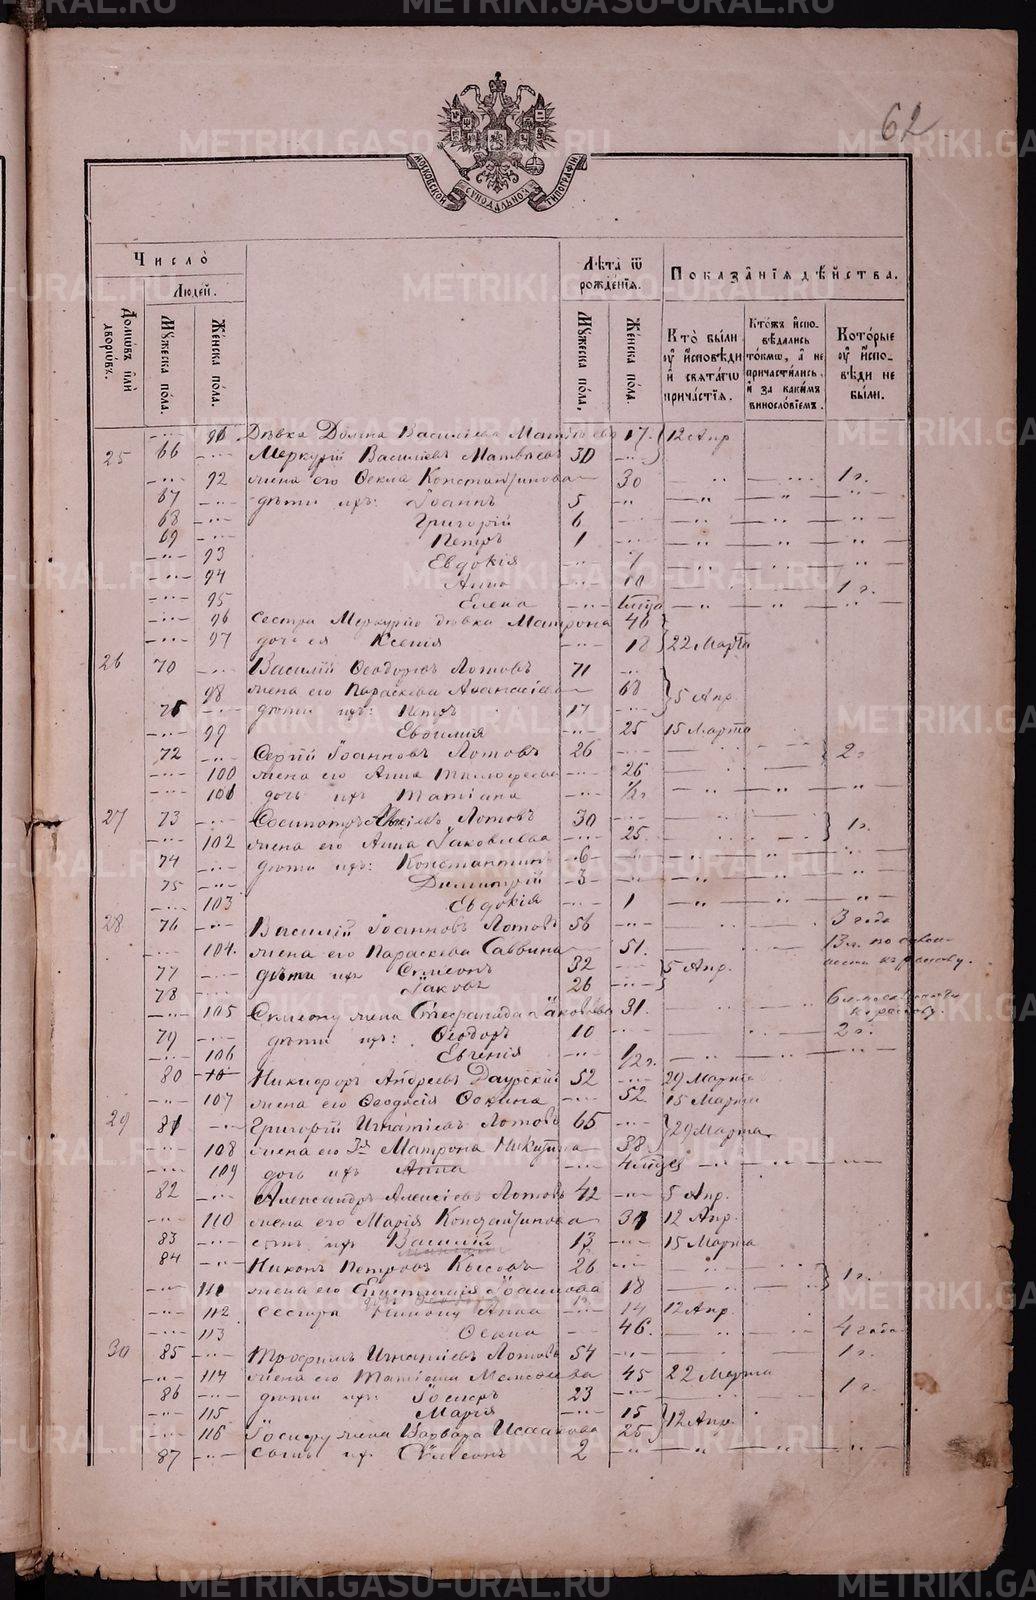 62
МОСКОВСКОЙ СУНОДАЛЬНОЙ ТИПОГРАФІИ
Число̀
Людей.
Домѡвъ и҆лѝ дворѡвъ.
Мꙋжеска по́ла.
Же́нска по́ла.
Лѣ́та ѿ рожде́нїѧ.
Мꙋжеска по́ла,
Же́нска по́ла.
Показа́нїѧ дѣ́йства.
Кто̀ бы́ли ᲂу҆ и҆́сповѣди и҆ свѧта́гѡ прича́стїѧ.
Кто́жъ и҆спо- вѣ́дались то́кмѡ, а҆ не причасти́лись, и҆ за каки́мъ винослові́емъ.
Кото́рые ᲂу҆ и҆́спо- вѣди не бы́ли.
91 Дѣвка Домна Васильева Матвѣева 17. 12 Апр
25 66 Меркурій Васильевъ Матвѣевъ 30
92 жена его Ѳекла Константинова 30 1 г.
67 дѣти ихъ: Іоаннъ 5
68 Григорій 6
69 Петръ 1
93 Евдокія 7
94 Анна 10 1 г.
95 Елена
96 Сестра Меркурію дѣвка Матрона 46
97 дочь ея Ксенія 18 22 Марта
26 70 Василій Ѳеодоровъ Лотовъ 71
98 жена его Параскева Аѳанасіева 68 5 Апр.
71 дѣти ихъ: Петръ 17
99 Евфимія 25 15 Марта
72 Сергій Іоанновъ Лотовъ 26 2 г
100 жена его Анна Тимоѳеева 26
101 дочь ихъ Татіана 1/2 г
27 73 Сосипатръ Лотовъ 30 1 г.
102 жена его Анна Іаковлева 25.
74 дѣти ихъ: Константинъ 6
75 Димитрій 3
103 Евдокія 1
28 76 Василій Іоанновъ Лотовъ 56 3 года
104. жена его Параскева Саввина 51. 13 л. по склон-
ности къ расколу.
77 дѣти ихъ Симеонъ 32 5 Апр.
78 Іаковъ 26
105 Симеону жена Стефанида Іаковлева 31. 6 л. по склонности
къ расколу.
79 дѣти ихъ: Ѳеодоръ 10 2 г.
106 Евгенія 1/2 г.
80 Никифоръ Андреевъ Даурскій 52 29 Марта
107 жена его Ѳеодосія Фокина 52 15 Марта
29 81 Григорій Игнатіевъ Лотовъ 65 29 Марта
108 жена его 3я Матрона Никитина 38
109 дочь ихъ Анна 4 мѣсяц
82 Александръ Алексіевъ Лотовъ 42 5 Апр.
110 жена его Марія Константинова 37 12 Апр.
83 сынъ ихъ Василій 13 15 Марта
84 Никонъ Петровъ 26 1 г.
111 жена его Іоакимова 18
112 сестра Никону Анна 14 12 Апр.
113 46. 4 года
30 85 Трофимъ Игнатіевъ Лотовъ 54 1 г.
114 жена его Татіана 45 22 Марта
86 дѣти ихъ: Іосифъ 23 1 г.
115 Марія 15
116 Іосифу жена Варвара Исаакова 25 12 Апр.
87 сынъ их. Симеонъ 2
METRIKI.GASO-URAL.RU